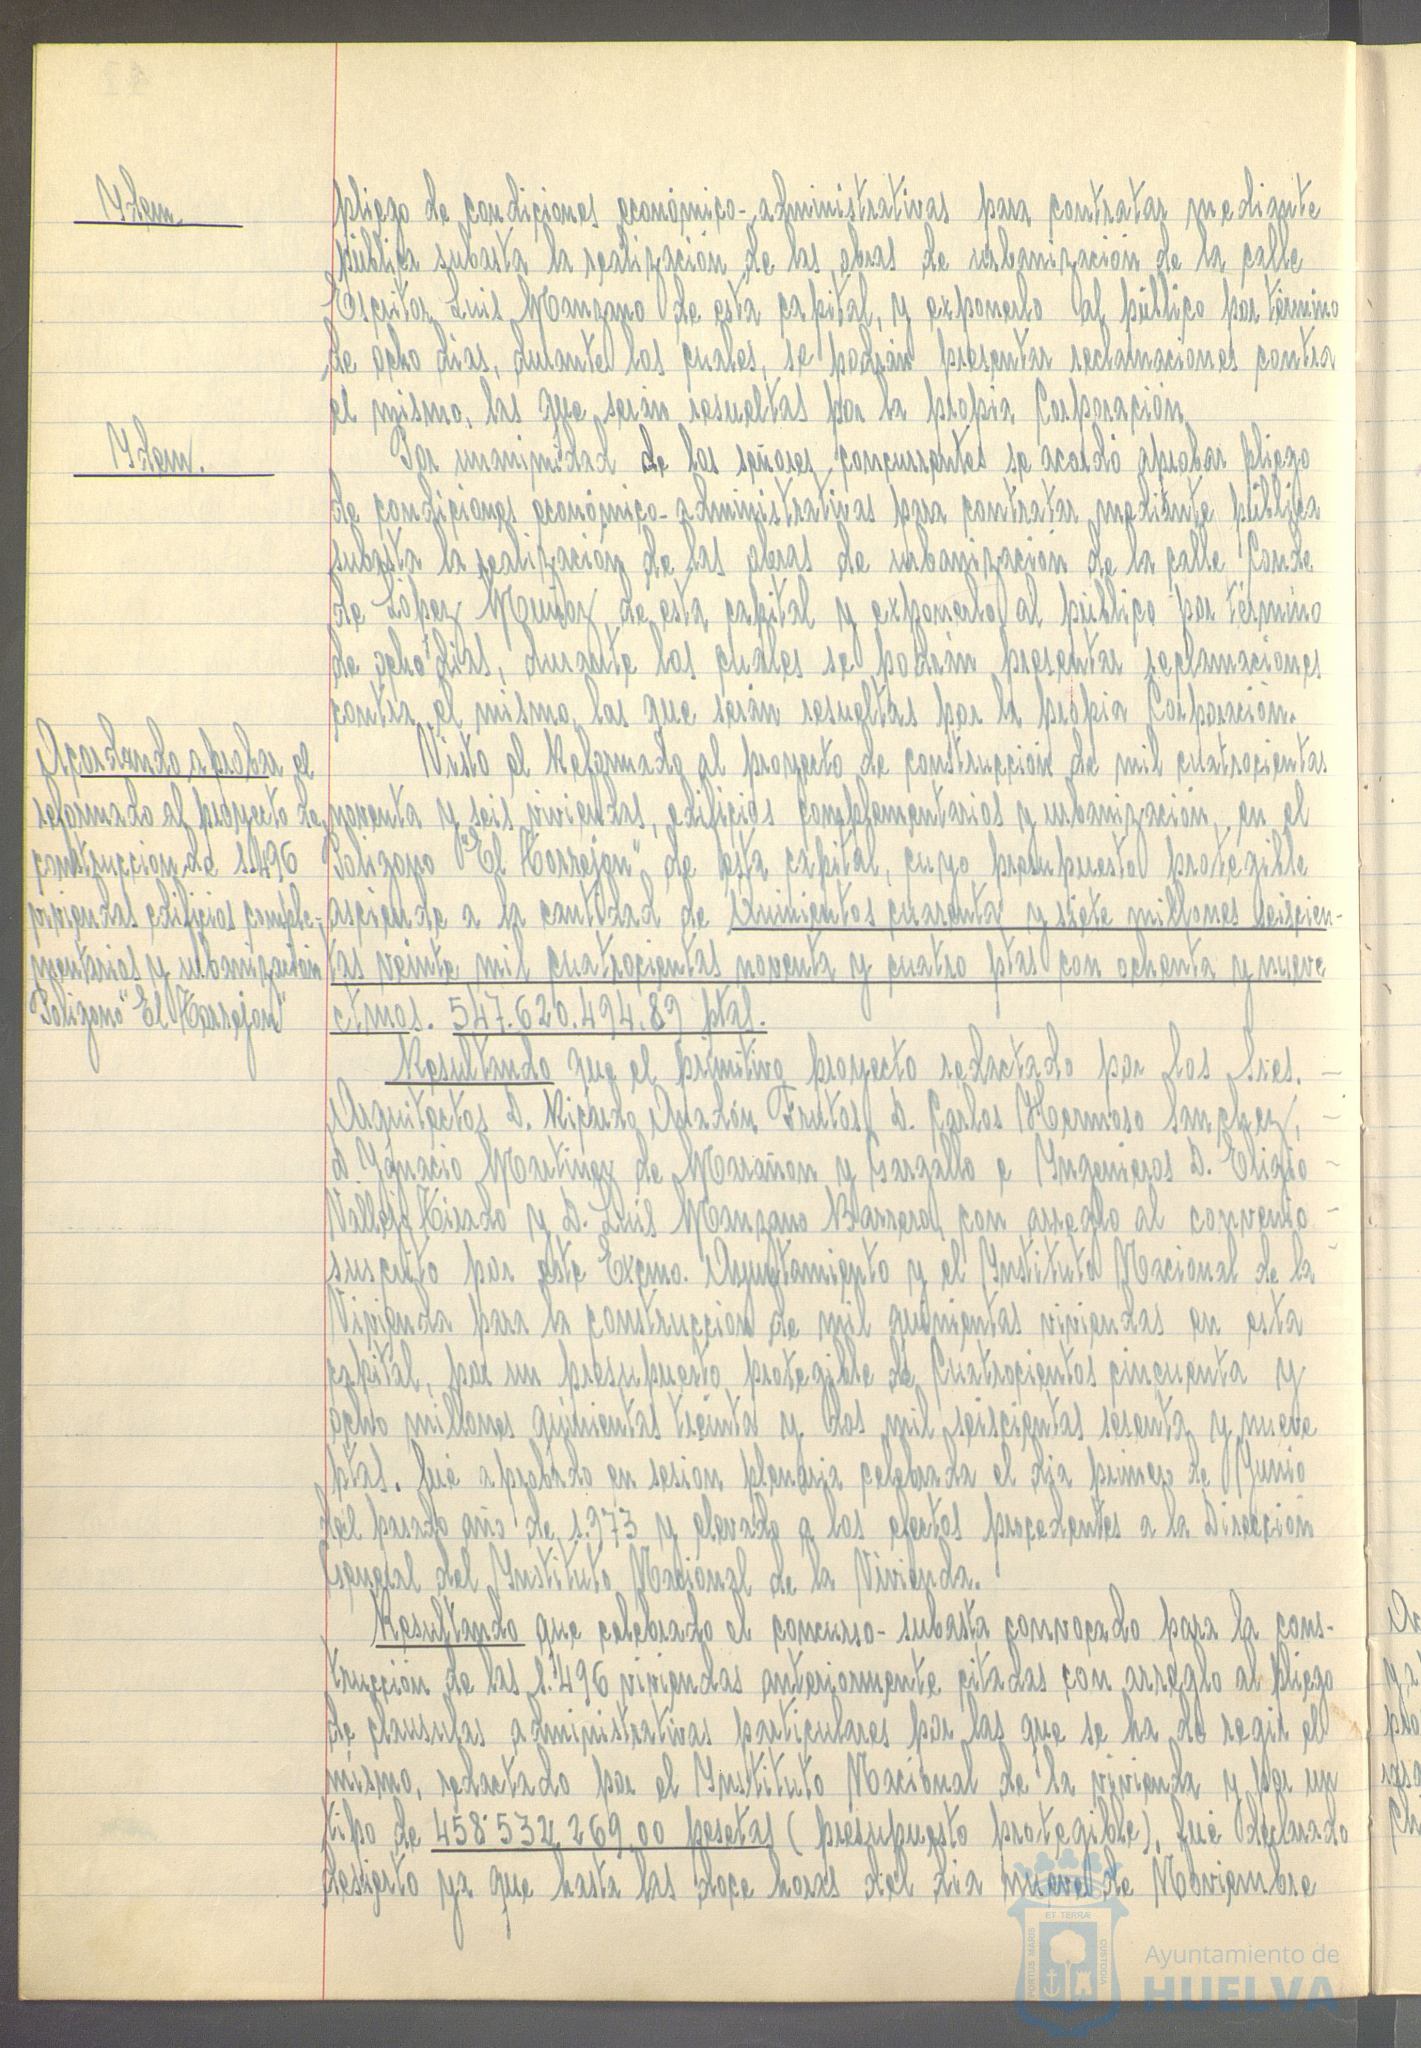 Ydem.
pliego de condiciones económico-administrativas para contratar mediante
pública subasta la realización de las obras de urbanización de la calle
Escritor Luis Manzano de esta capital, y exponerlo al público por término
de ocho dias, durante los cuales, se podrán presentar reclamaciones contra
el mismo, las que serán resueltas por la propia Corporación.
Ydem.
Por unanimidad de los señores concurrentes se acordó aprobar pliego
de condiciones económico-administrativas para contratar mediante pública
subasta la realización de las obras de urbanización de la calle Conde
de López Muñoz, de esta capital y exponerlo al público por término
de ocho dias, durante los cuales se podrán presentar reclamaciones
contra el mismo, las que serán resueltas por la propia Corporación.
Acordando aprobar el
reformado al proyecto de
construccion de 1.496
viviendas edificios comple-
mentarios y urbanización
Poligono "El Torrejon"
Visto el Reformado al proyecto de construcción de mil cuatrocientas
noventa y seis viviendas, edificios complementarios y urbanización, en el
Poligono "El Torrejon" de esta capital, cuyo presupuesto protegible
asciende a la cantidad de Quinientos cuarenta y siete millones seiscien-
tas veinte mil cuatrocientas noventa y cuatro ptas con ochenta y nueve
ctmos. 547.620.494,89 ptas.
Resultando que el primitivo proyecto redactado por los Sres.
Arquitectos D. Ricardo Anadón Frutos, D. Carlos Hermoso Sanchez,
D. Ygnacio Martinez de Marañon y Gargallo e Yngenieros D. Eligio
Vallejo Tirado y D. Luis Manzano Barrero, con arreglo al convenio
suscrito por este Excmo. Ayuntamiento y el Ynstituto Nacional de la
Vivienda para la construccion de mil quinientas viviendas en esta
capital, por un presupuesto protegible de Cuatrocientos cincuenta y
ocho millones quinientas treinta y dos mil seiscientas sesenta y nueve
ptas. fué aprobado en sesion plenaria celebrada el dia primero de Junio
del pasado año de 1.973 y elevado a los efectos procedentes a la Dirección
General del Ynstituto Nacional de la Vivienda.
Resultando que celebrado el concurso-subasta convocado para la cons-
trucción de las 1.496 viviendas anteriormente citadas con arreglo al pliego
de clausulas administrativas particulares por las que se ha de regir el
mismo, redactado por el Ynstituto Nacional de la vivienda y por un
tipo de 458.532.269,00 pesetas (presupuesto protegible), fué declarado
desierto ya que hasta las doce horas del dia nueve de Noviembre
ET TERRÆ
PORTUS MARIS
CUSTODIA
Ayuntamiento de
HUELVA